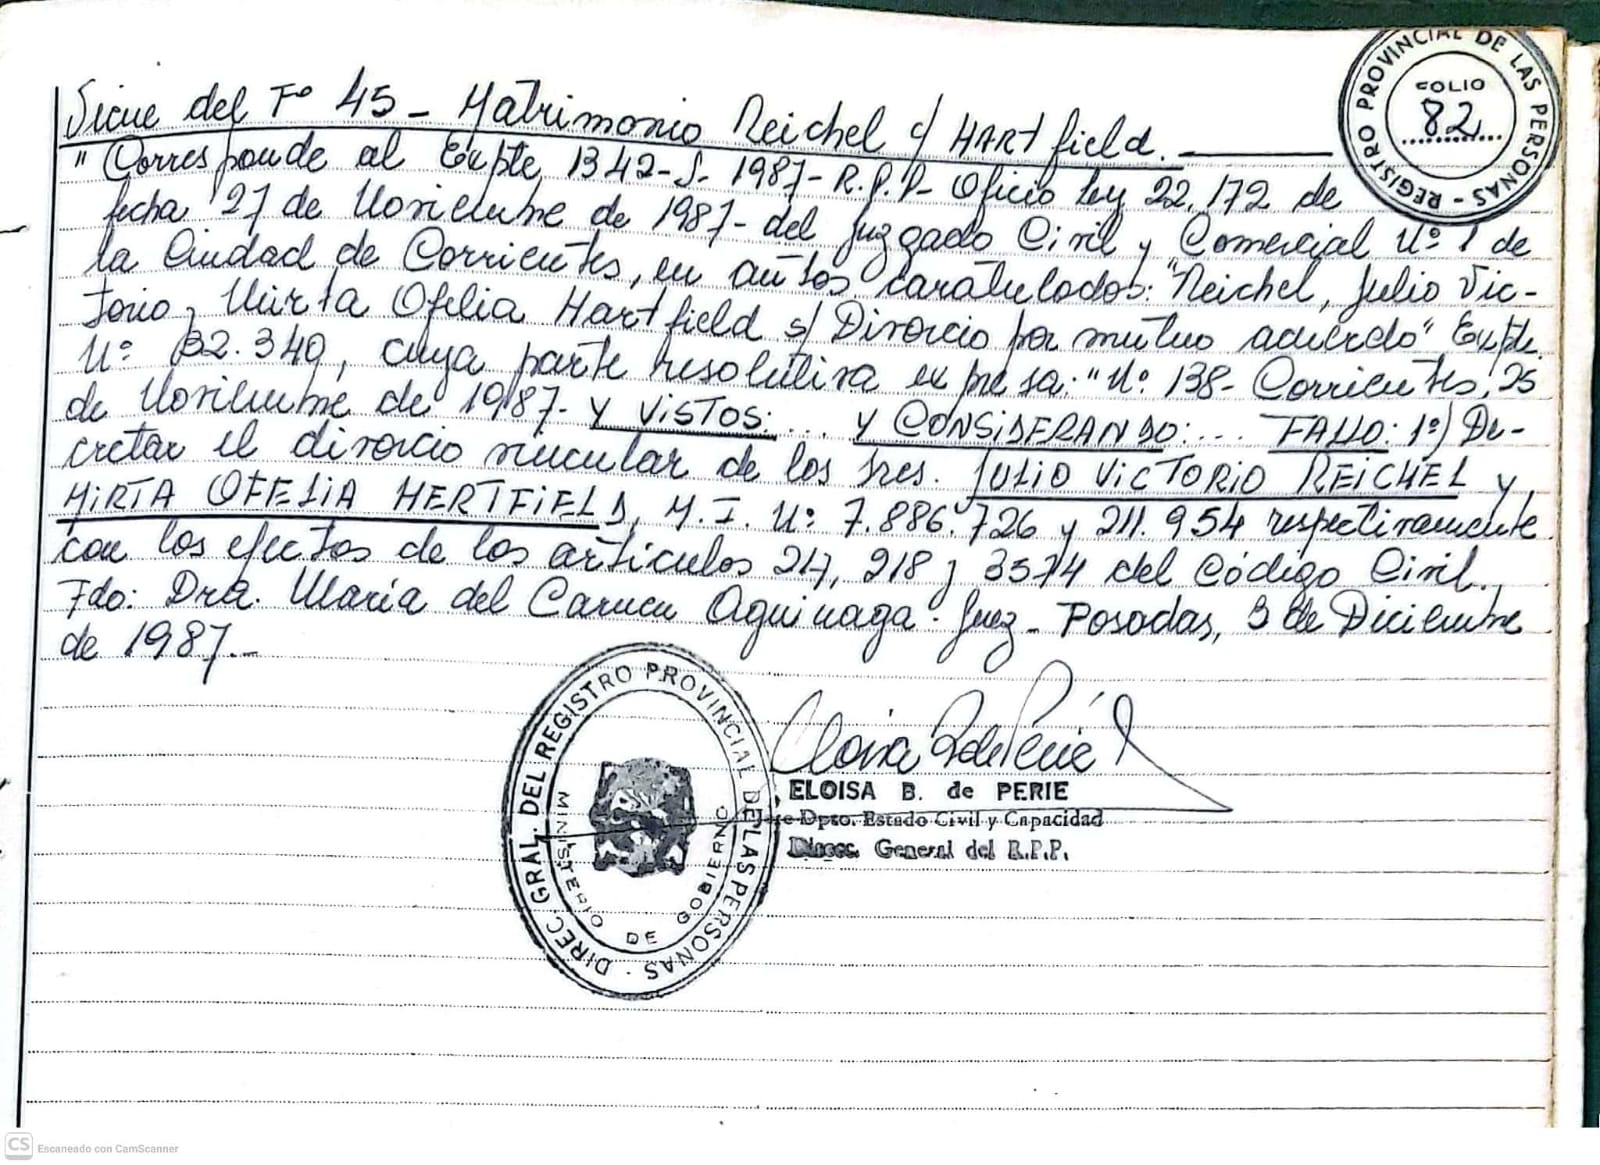 REGISTRO PROVINCIAL DE LAS PERSONAS
FOLIO
82
Sigue del Fº 45 - Matrimonio Reichel c/ HARTfield.
"Corresponde al Expte 1342-S-1987-R.P.P- Oficio Ley 22.172 de
fecha 27 de Noviembre de 1987- del Juzgado Civil y Comercial Nº 1 de
la Ciudad de Corrientes, en autos caratulados: "Reichel, Julio Vic-
torio y Mirta Ofelia Hartfield s/ Divorcio por mutuo acuerdo" Expte.
Nº 32.340, cuya parte resolutiva expresa: "Nº 138- Corrientes, 25
de Noviembre de 1987- Y VISTOS: ... Y CONSIDERANDO: ... FALLO: 1º) De-
cretar el divorcio vincular de los Sres. JULIO VICTORIO REICHEL y
MIRTA OFELIA HERTFIELD, M.I. Nº 7.886.726 y 211.954 respectivamente
con los efectos de los artículos 217, 218 y 3574 del Código Civil.
Fdo: Dra. María del Carmen Aguinaga. Juez- Posadas, 3 de Diciembre
de 1987.-
DIREC. GRAL. DEL REGISTRO PROVINCIAL DE LAS PERSONAS
MINISTERIO DE GOBIERNO
ELOISA B. de PERIE
Jefe Dpto. Estado Civil y Capacidad
Direcc. General del R.P.P.
CS Escaneado con CamScanner